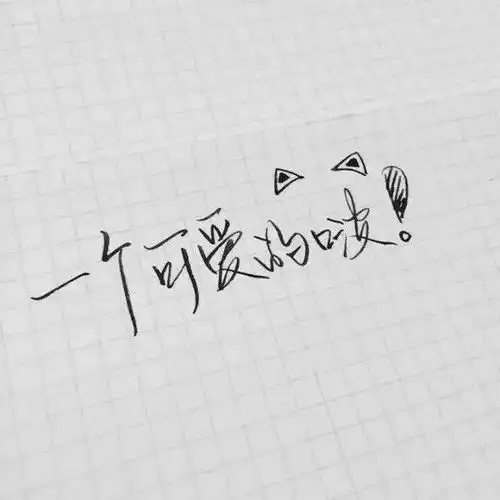 一个可爱的啵!